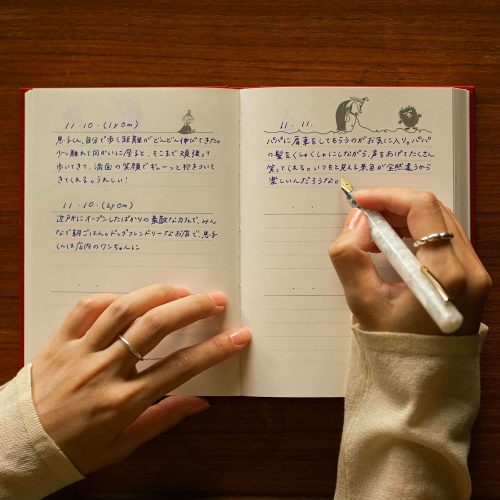 11・10・(1yom)
息子くん、自分で歩く距離がどんどん伸びてきた。
少し離れて向かいに座ると、そこまで頑張って
歩いてきて、満面の笑顔でギューッと抱きついて
きてくれる。うれしい!
11・10・(2yom)
近所にオープンしたばかりの素敵なカフェで、みん
なで朝ごはん。ドッグフレンドリーなお店で、息子
くんは店内のワンちゃんに
11・11・
パパに肩車をしてもらうのがお気に入り。パパ
の髪をくしゃくしゃにしながら、声をあげてたくさん
笑ってくれる。いつもと見える景色が全然違うから
楽しいんだろうなぁ。